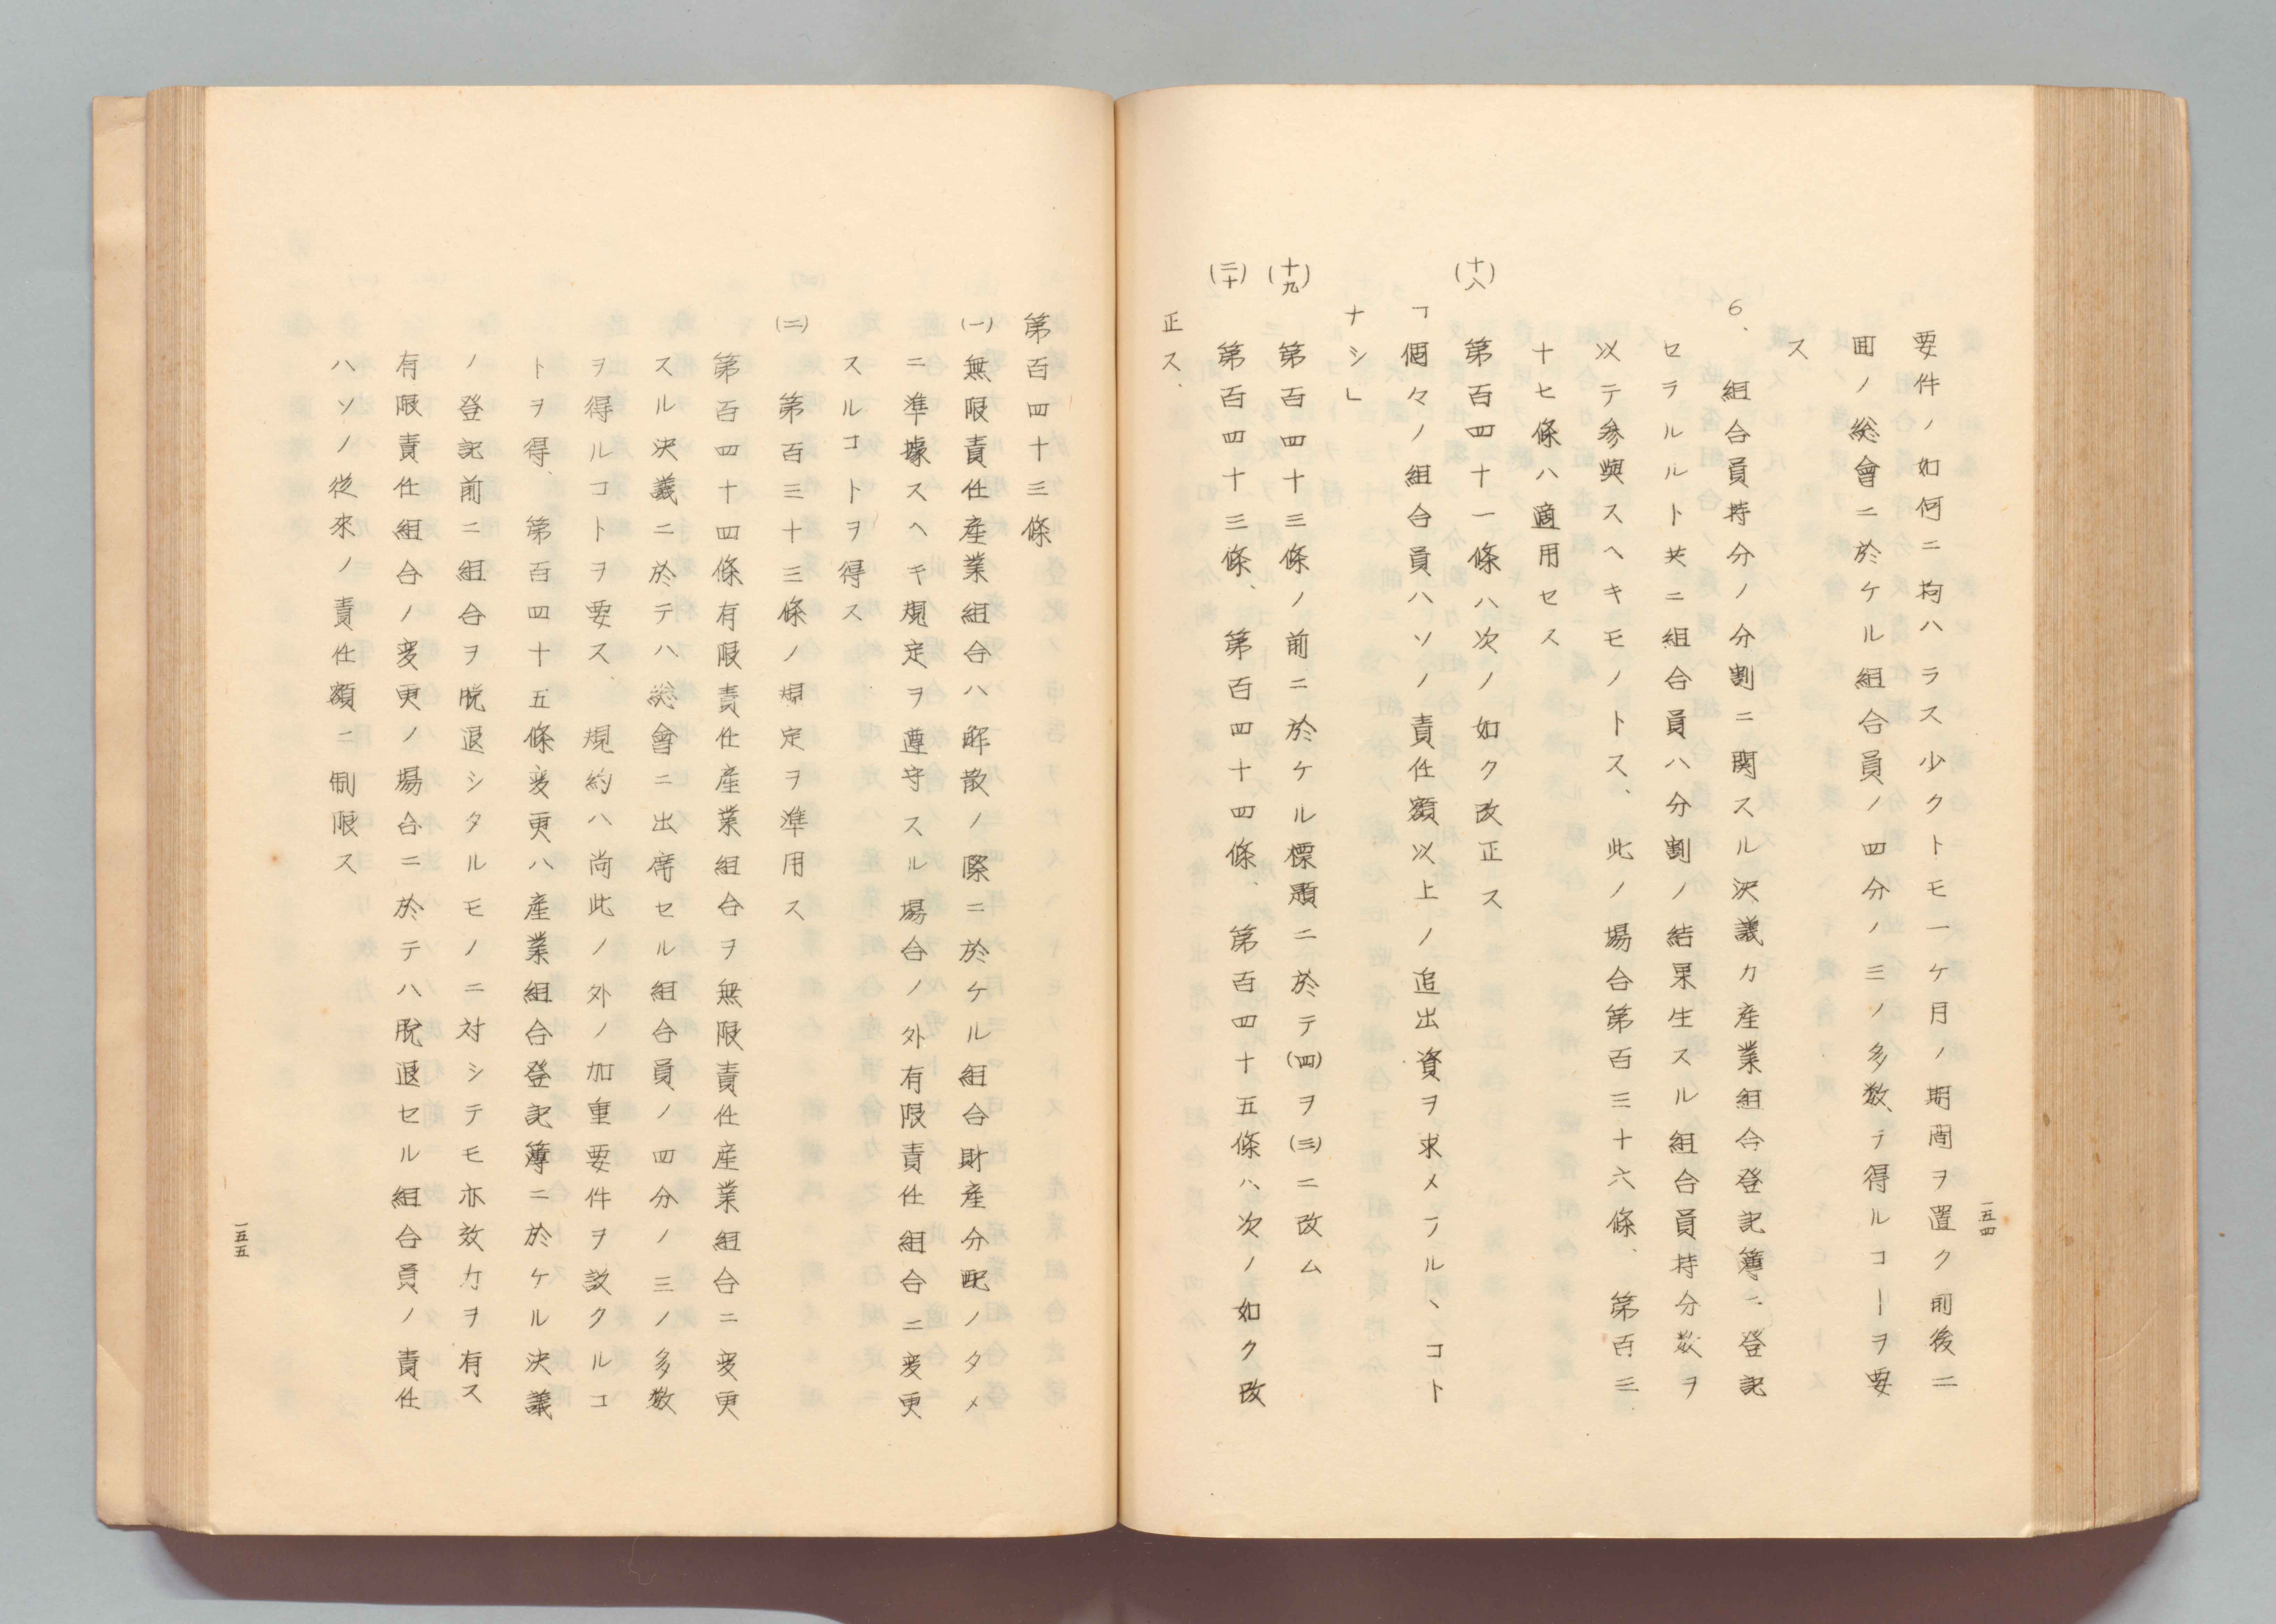 一五四
要件ノ如何ニ拘ハラス少クトモ一ケ月ノ期間ヲ置ク前後二
回ノ総會ニ於ケル組合員ノ四分ノ三ノ多数、テ得ルコーヲ要
ス
6、組合員持分ノ分割ニ関スル決議カ産業組合登記簿ニ登記
セラルルト共ニ組合員ハ分割ノ結果生スル組合員持分数ヲ
以テ参與スヘキモノトス、此ノ場合第百三十六條、第百三
十七條ハ適用セス
(十八)第百四十一條ハ次ノ如ク改正ス
「個々ノ組合員ハソノ責任額以上ノ追出資ヲ求メラル丶コト
ナシ」
(十九)第百四十三條ノ前ニ於ケル標題ニ於テ(四)ヲ(三)ニ改ム
(二十)第百四十三條、第百四十四條、第百四十五條ハ次ノ如ク改
正ス、
第百四十三條
(一)無限責任産業組合ハ解散ノ際ニ於ケル組合財産分配ノタメ
ニ準據スヘキ規定ヲ遵守スル場合ノ外有限責任組合ニ変更
スルコトヲ得ス
(二)第百三十三條ノ規定ヲ準用ス
第百四十四條有限責任産業組合ヲ無限責任産業組合ニ変更
スル決議ニ於テハ総會ニ出席セル組合員ノ四分ノ三ノ多数
ヲ得ルコトヲ要ス、規約ハ尚此ノ外ノ加重要件ヲ設クルコ
トヲ得、第百四十五條変更ハ産業組合登記簿ニ於ケル決議
ノ登記前ニ組合ヲ脱退シタルモノニ対シテモ亦效力ヲ有ス
有限責任組合ノ変更ノ場合ニ於テハ脱退セル組合員ノ責任
ハソノ従來ノ責任額ニ制限ス
一五五